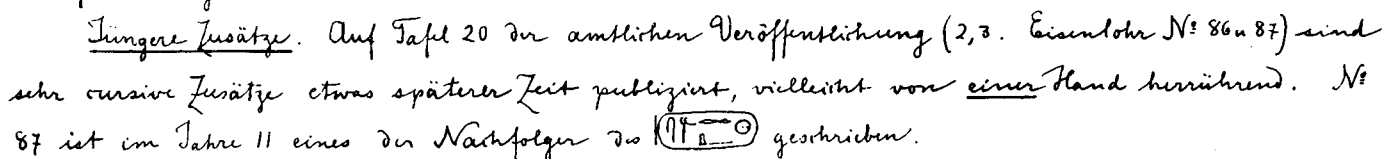 Jüngere Zusätze. Auf Tafel 20 der amtlichen Veröffentlichung (2,3. Eisenlohr Nº 86 u 87) sind
sehr cursive Zusätze etwas späterer Zeit publiziert, vielleicht von einer Hand herrührend. Nº
87 ist im Jahre 11 eines der Nachfolger des geschrieben.